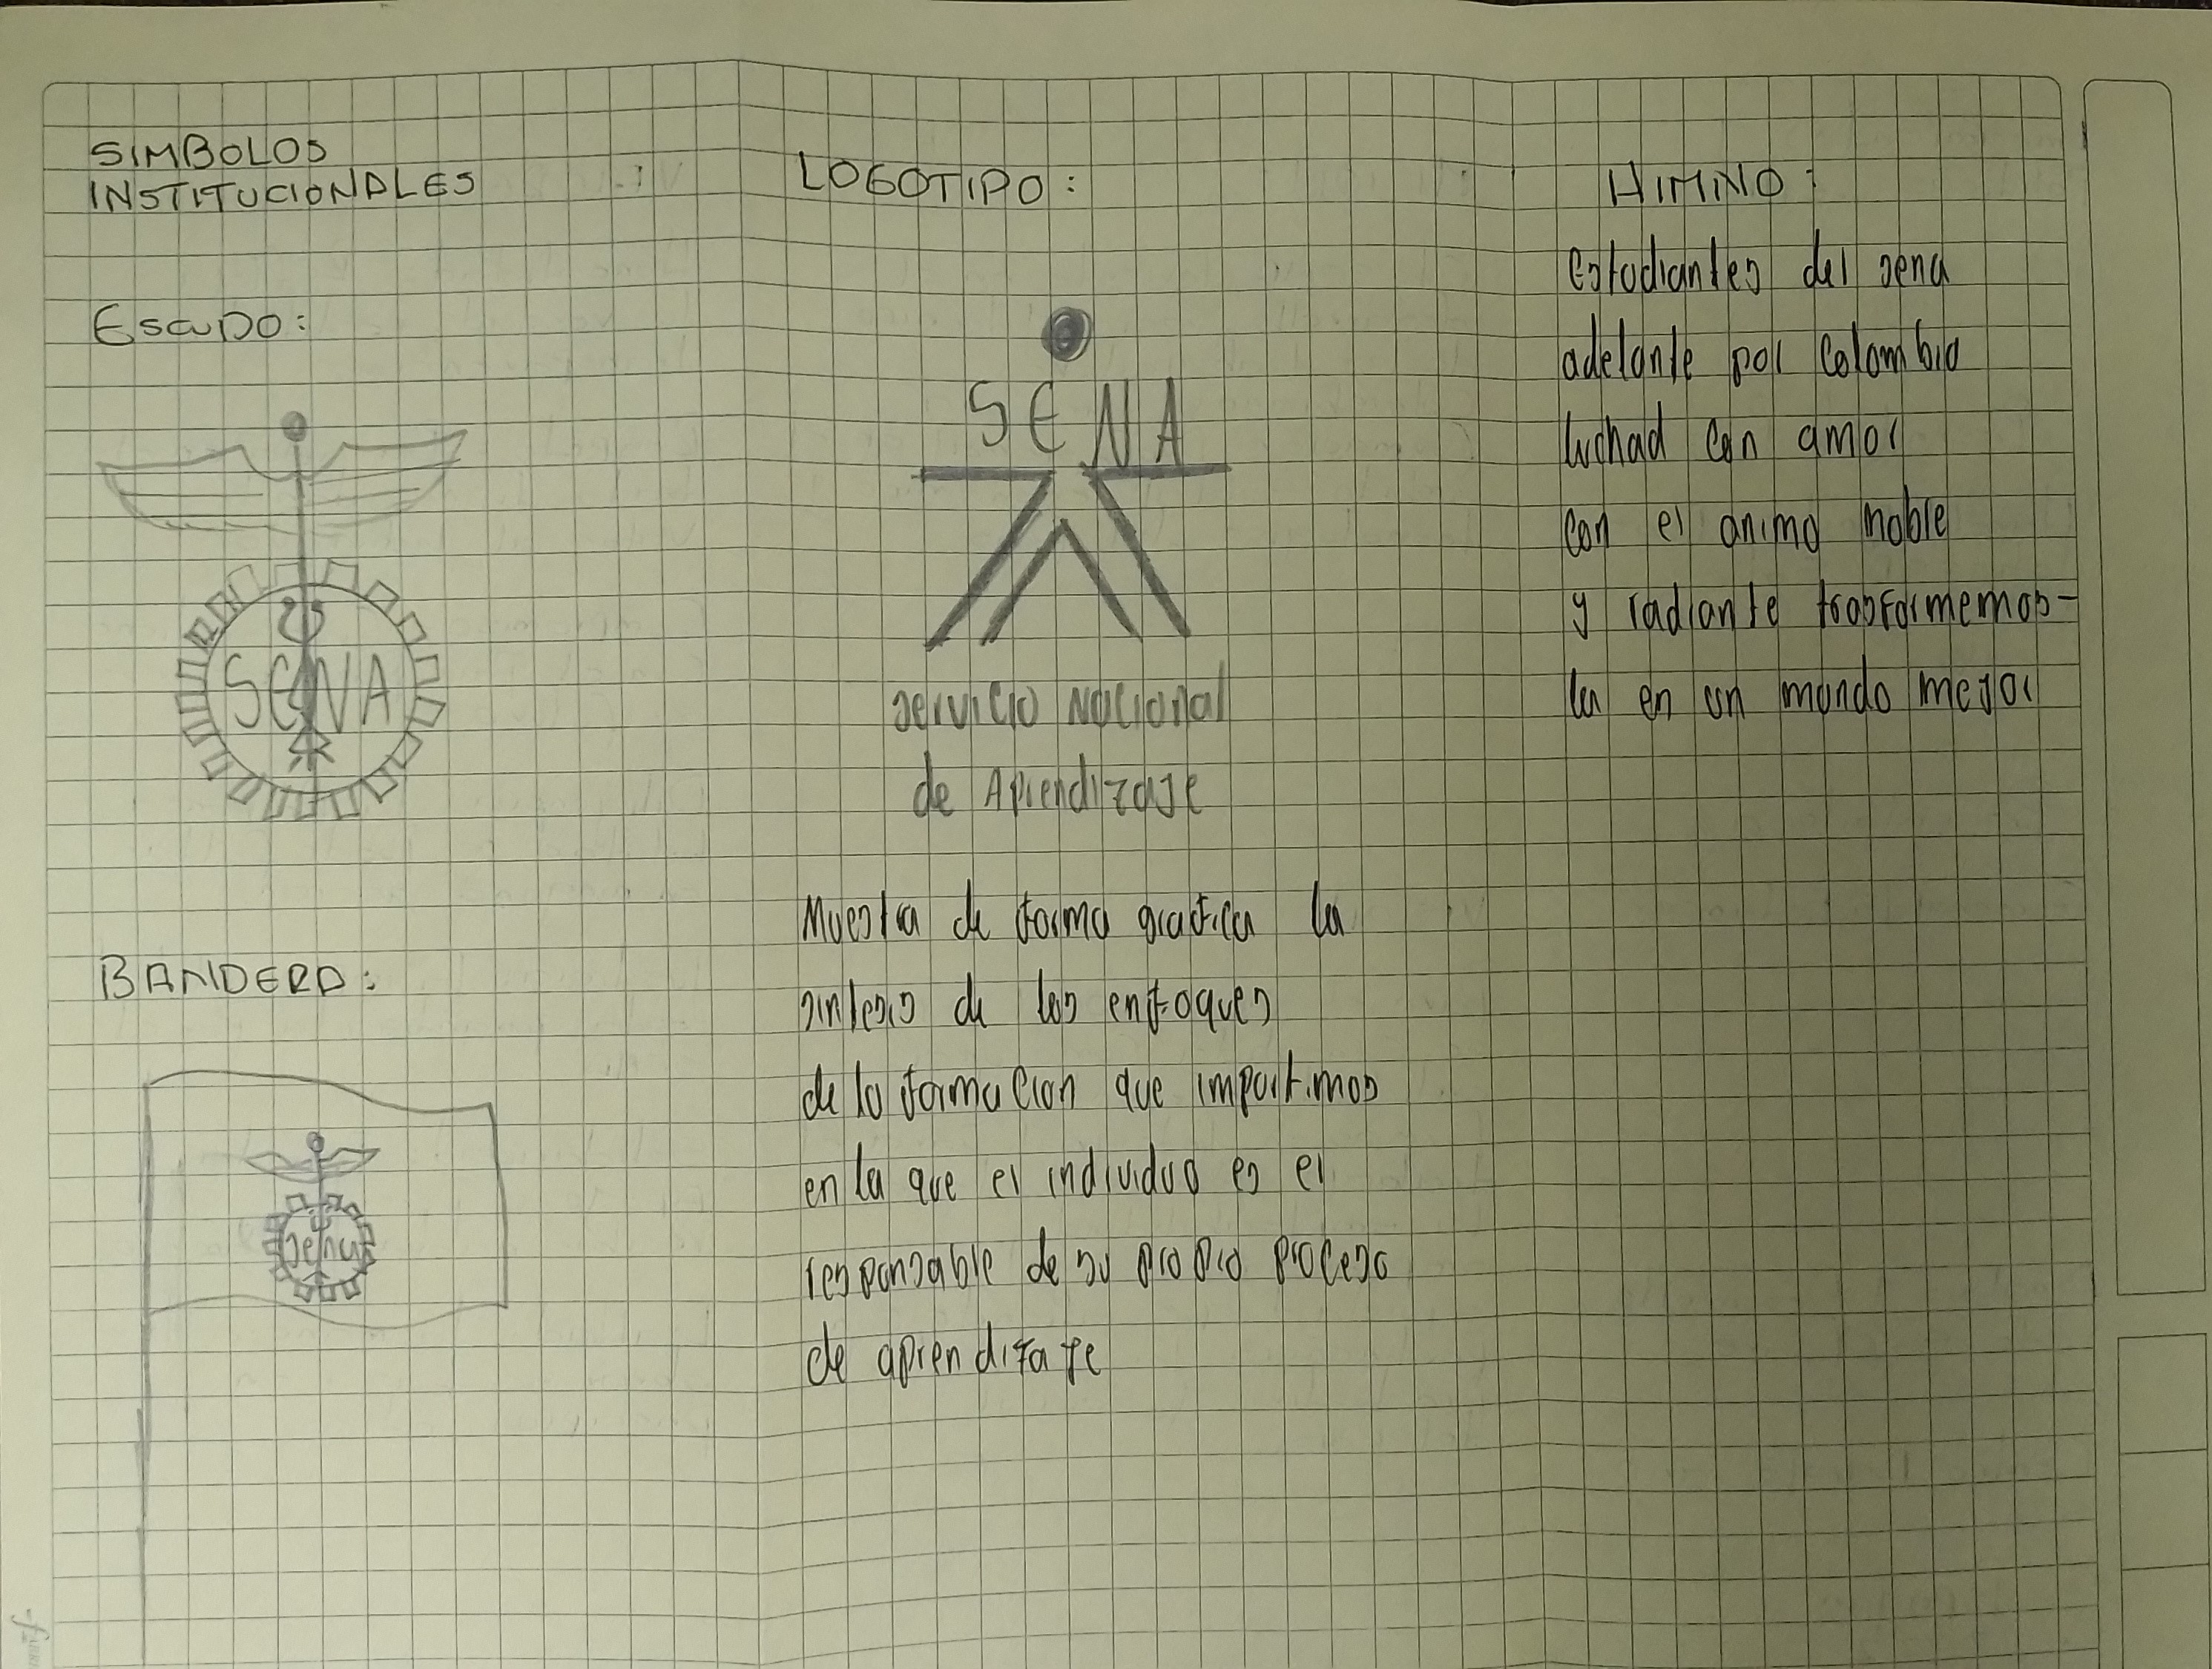 SIMBOLOS
INSTITUCIONALES
ESCUDO:
SENA
BANDERA:
sena
LOGOTIPO:
SENA
servicio Nacional
de Aprendizaje
Muestra de forma grafica la
sintesis de los enfoques
de la formacion que impartimos
en la que el individuo es el
responsable de su propio proceso
de aprendizaje
HIMNO:
estudiantes del sena
adelante por Colombia
luchad con amor
con el animo noble
y radiante trasformemos-
la en un mundo mejor